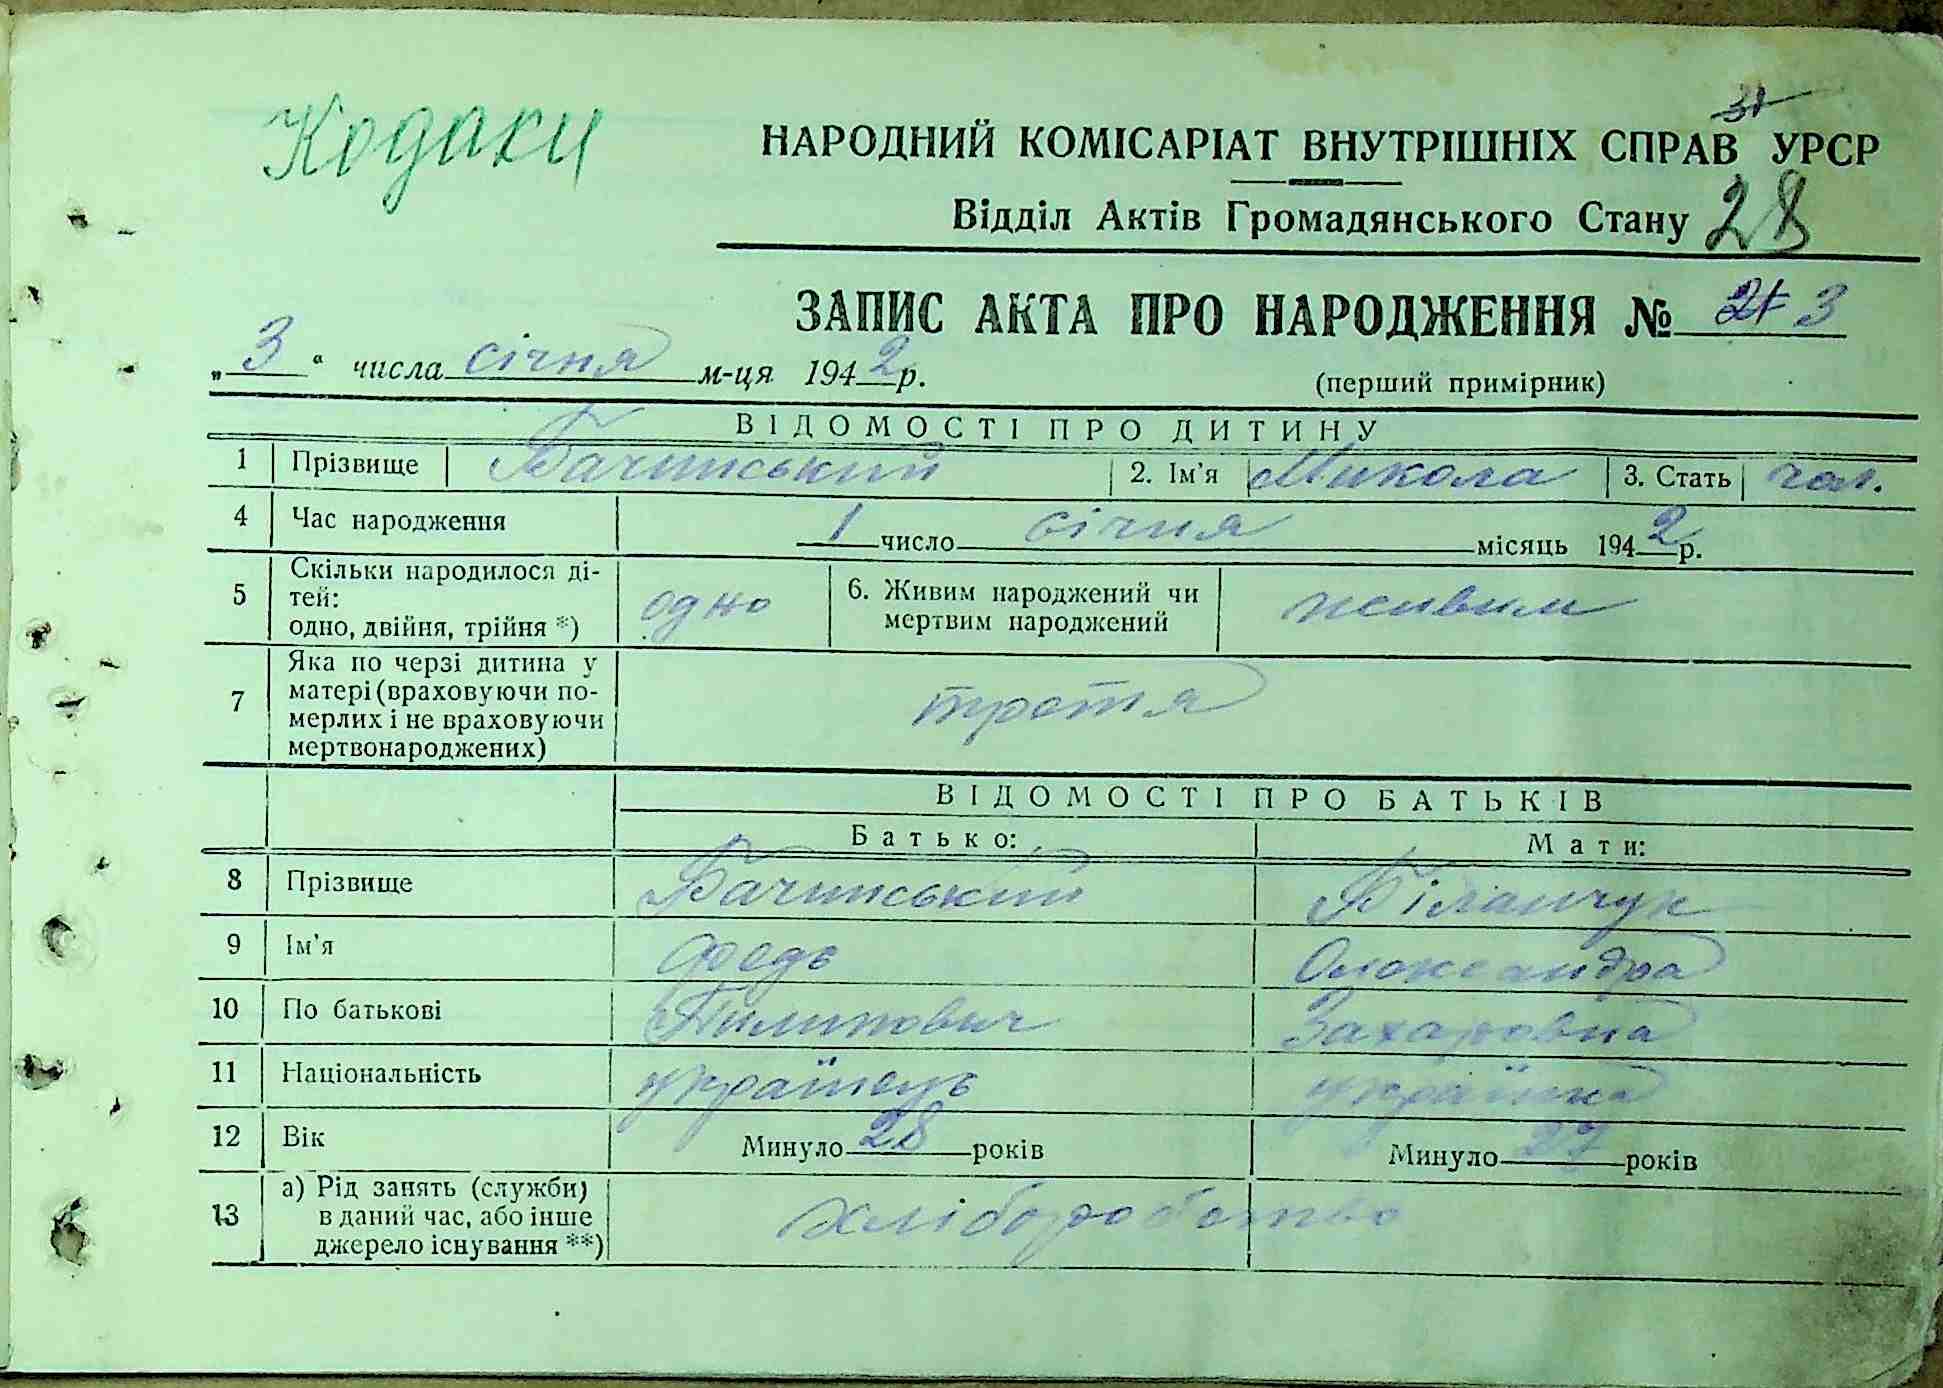 Кодаки
НАРОДНИЙ КОМІСАРІАТ ВНУТРІШНІХ СПРАВ УРСР
Відділ Актів Громадянського Стану 28
ЗАПИС АКТА ПРО НАРОДЖЕННЯ № 3
„3“ числа січня м-ця 1942 р.
(перший примірник)
ВІДОМОСТІ ПРО ДИТИНУ
1 Прізвище Бачинський 2. Ім'я Микола 3. Стать чол.
4 Час народження 1 число січня місяць 1942 р.
5 Скільки народилося ді-
тей:
одно, двійня, трійня *) одно 6. Живим народжений чи
мертвим народжений живим
7 Яка по черзі дитина у
матері (враховуючи по-
мерлих і не враховуючи
мертвонароджених) третя
ВІДОМОСТІ ПРО БАТЬКІВ
Батько: Мати:
8 Прізвище Бачинський Біланчук
9 Ім'я Федь Олександра
10 По батькові Пилипович Захаровна
11 Національність українець українка
12 Вік Минуло 28 років Минуло 27 років
13 а) Рід занять (служби)
в даний час, або інше
джерело існування **) хліборобство